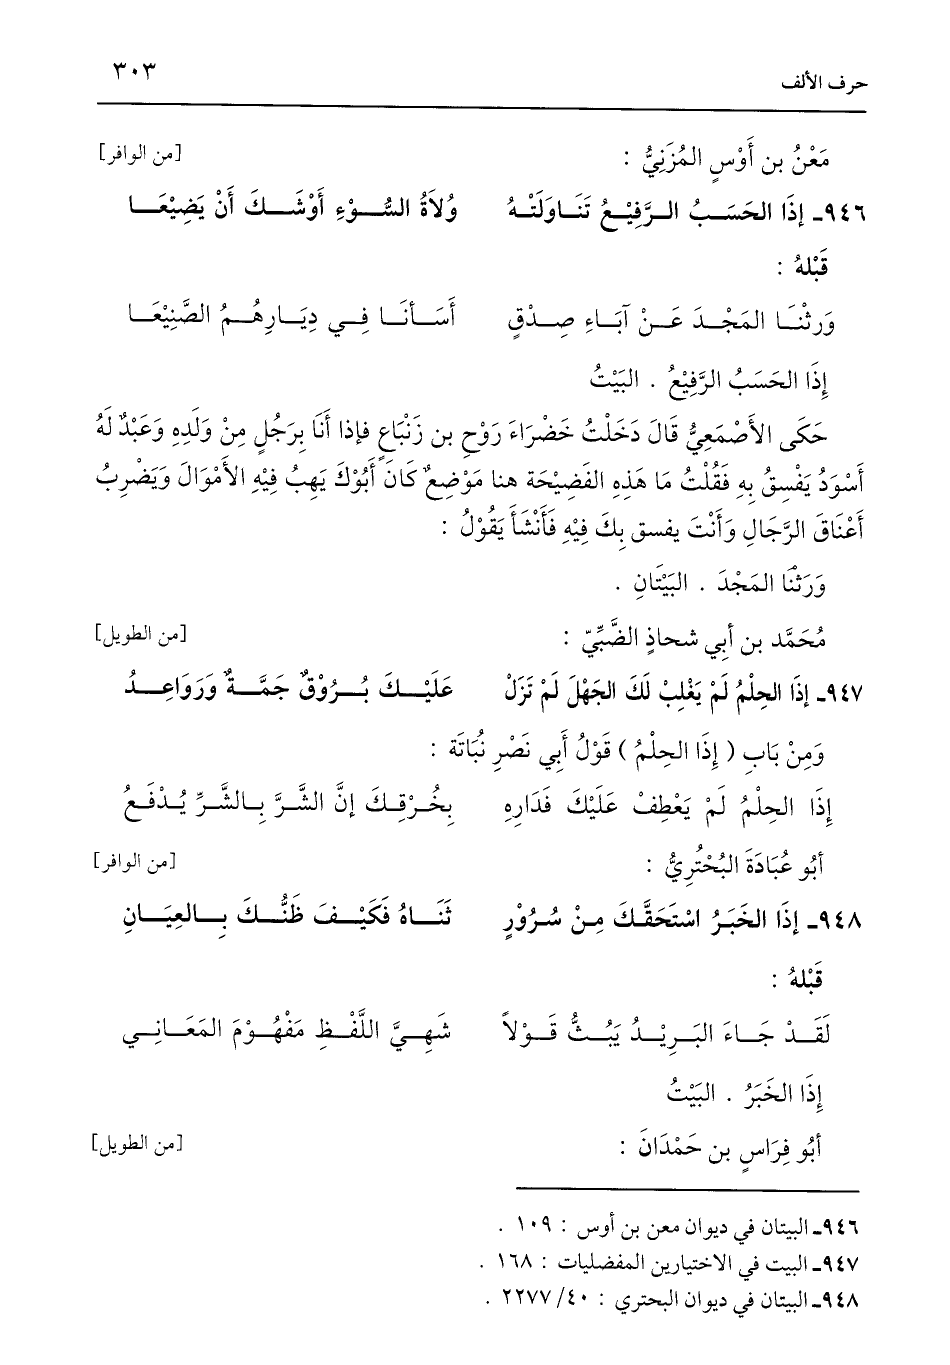 حرف الألف ٣٠٣
مَعْنُ بن أَوْسٍ المُزَنِيُّ : [من الوافر]
٩٤٦ـ إِذَا الحَسَبُ الرَّفِيْعُ تَنَاوَلَتْهُ وُلَاةُ السُّوْءِ أَوْشَكَ أَنْ يَضِيْعَا
قَبْلهُ :
وَرِثْنَا المَجْدَ عَنْ آبَاءِ صِدْقٍ أَسَأنَا فِي دِيَارِهُمُ الصَّنِيْعَا
إِذَا الحَسَبُ الرَّفِيْعُ . البَيْتُ
حَكَى الأَصْمَعِيُّ قَالَ دَخَلْتُ خَضْرَاءَ رَوْحِ بن زَنْبَاعٍ فإذا أَنَا بِرَجُلٍ مِنْ وَلَدِهِ وَعَبْدٌ لَهُ
أَسْوَدُ يَفْسِقُ بِهِ فَقُلْتُ مَا هَذِهِ الفَضِيْحَة هنا مَوْضِعٌ كَانَ أَبُوْكَ يَهِبُ فِيْهِ الأَمْوَالَ وَيَضْرِبُ
أَعْنَاقَ الرِّجَالِ وَأَنْتَ يفسق بِكَ فِيْهِ فَأَنْشَأَ يَقُوْلُ :
وَرَثْنَا المَجْدَ . البَيْتَانِ .
مُحَمَّد بن أبي شحاذٍ الضَّبِّيّ : [من الطويل]
٩٤٧ـ إِذَا الحِلْمُ لَمْ يَغْلِبْ لَكَ الجَهْلَ لَمْ تَزَلْ عَلَيْكَ بُرُوْقٌ جَمَّةٌ وَرَوَاعِدُ
وَمِنْ بَابِ ( إِذَا الحِلْمُ ) قَوْلُ أَبِي نَصْرِ نُبَاتَة :
إِذَا الحِلْمُ لَمْ يَعْطِفْ عَلَيْكَ فَدَارِهِ بِخُرْقِكَ إنَّ الشَّرَّ بِالشَّرِّ يُدْفَعُ
أَبُو عُبَادَةَ البُحْتُرِيُّ : [من الوافر]
٩٤٨ـ إِذَا الخَبَرُ اسْتَحَقَّكَ مِنْ سُرُوْرٍ ثَنَاهُ فَكَيْفَ ظَنُّكَ بِالعِيَانِ
قَبْلهُ :
لَقَدْ جَاءَ البَرِيْدُ يَبُثُّ قَوْلاً شَهِيَّ اللَّفْظِ مَفْهُوْمَ المَعَانِي
إِذَا الخَبَرُ . البَيْتُ
أَبُو فِرَاسٍ بن حَمْدَانَ : [من الطويل]
٩٤٦ـ البيتان في ديوان معن بن أوس : ١٠٩ .
٩٤٧ـ البيت في الاختيارين المفضليات : ١٦٨ .
٩٤٨ـ البيتان في ديوان البحتري : ٤٠/ ٢٢٧٧ .